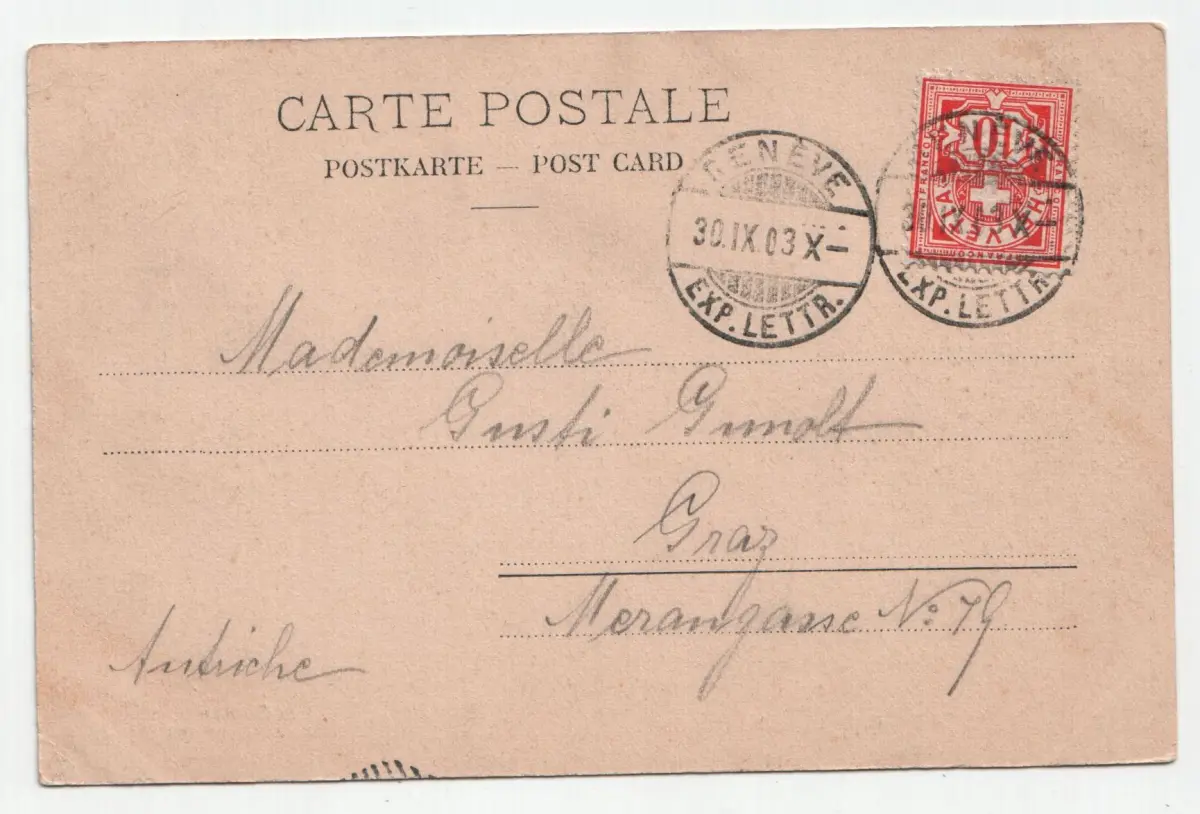 CARTE POSTALE
POSTKARTE — POST CARD
GENÈVE
30.IX.03 X—
EXP. LETTR.
GENÈVE
EXP. LETTR.
FRANCO
10
HELVETIA
FRANCO
Mademoiselle
Gusti Gumolt
Graz
Merangasse No: 79
Autriche